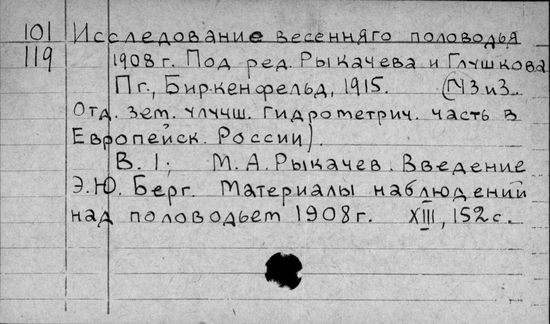 101 Исследование весенняго половодья
119 1908 г. Под ред. Рыкачева и Глушкова
Пг., Биркенфельд, 1915. (ЧЗ и З.
Отд. зем. улучш. Гидрометрич. часть в
Европейск. России).
В. 1; М. А. Рыкачев. Введение
Э. Ю. Берг. Материалы наблюдений
над половодьем 1908 г. XIII, 152 с.